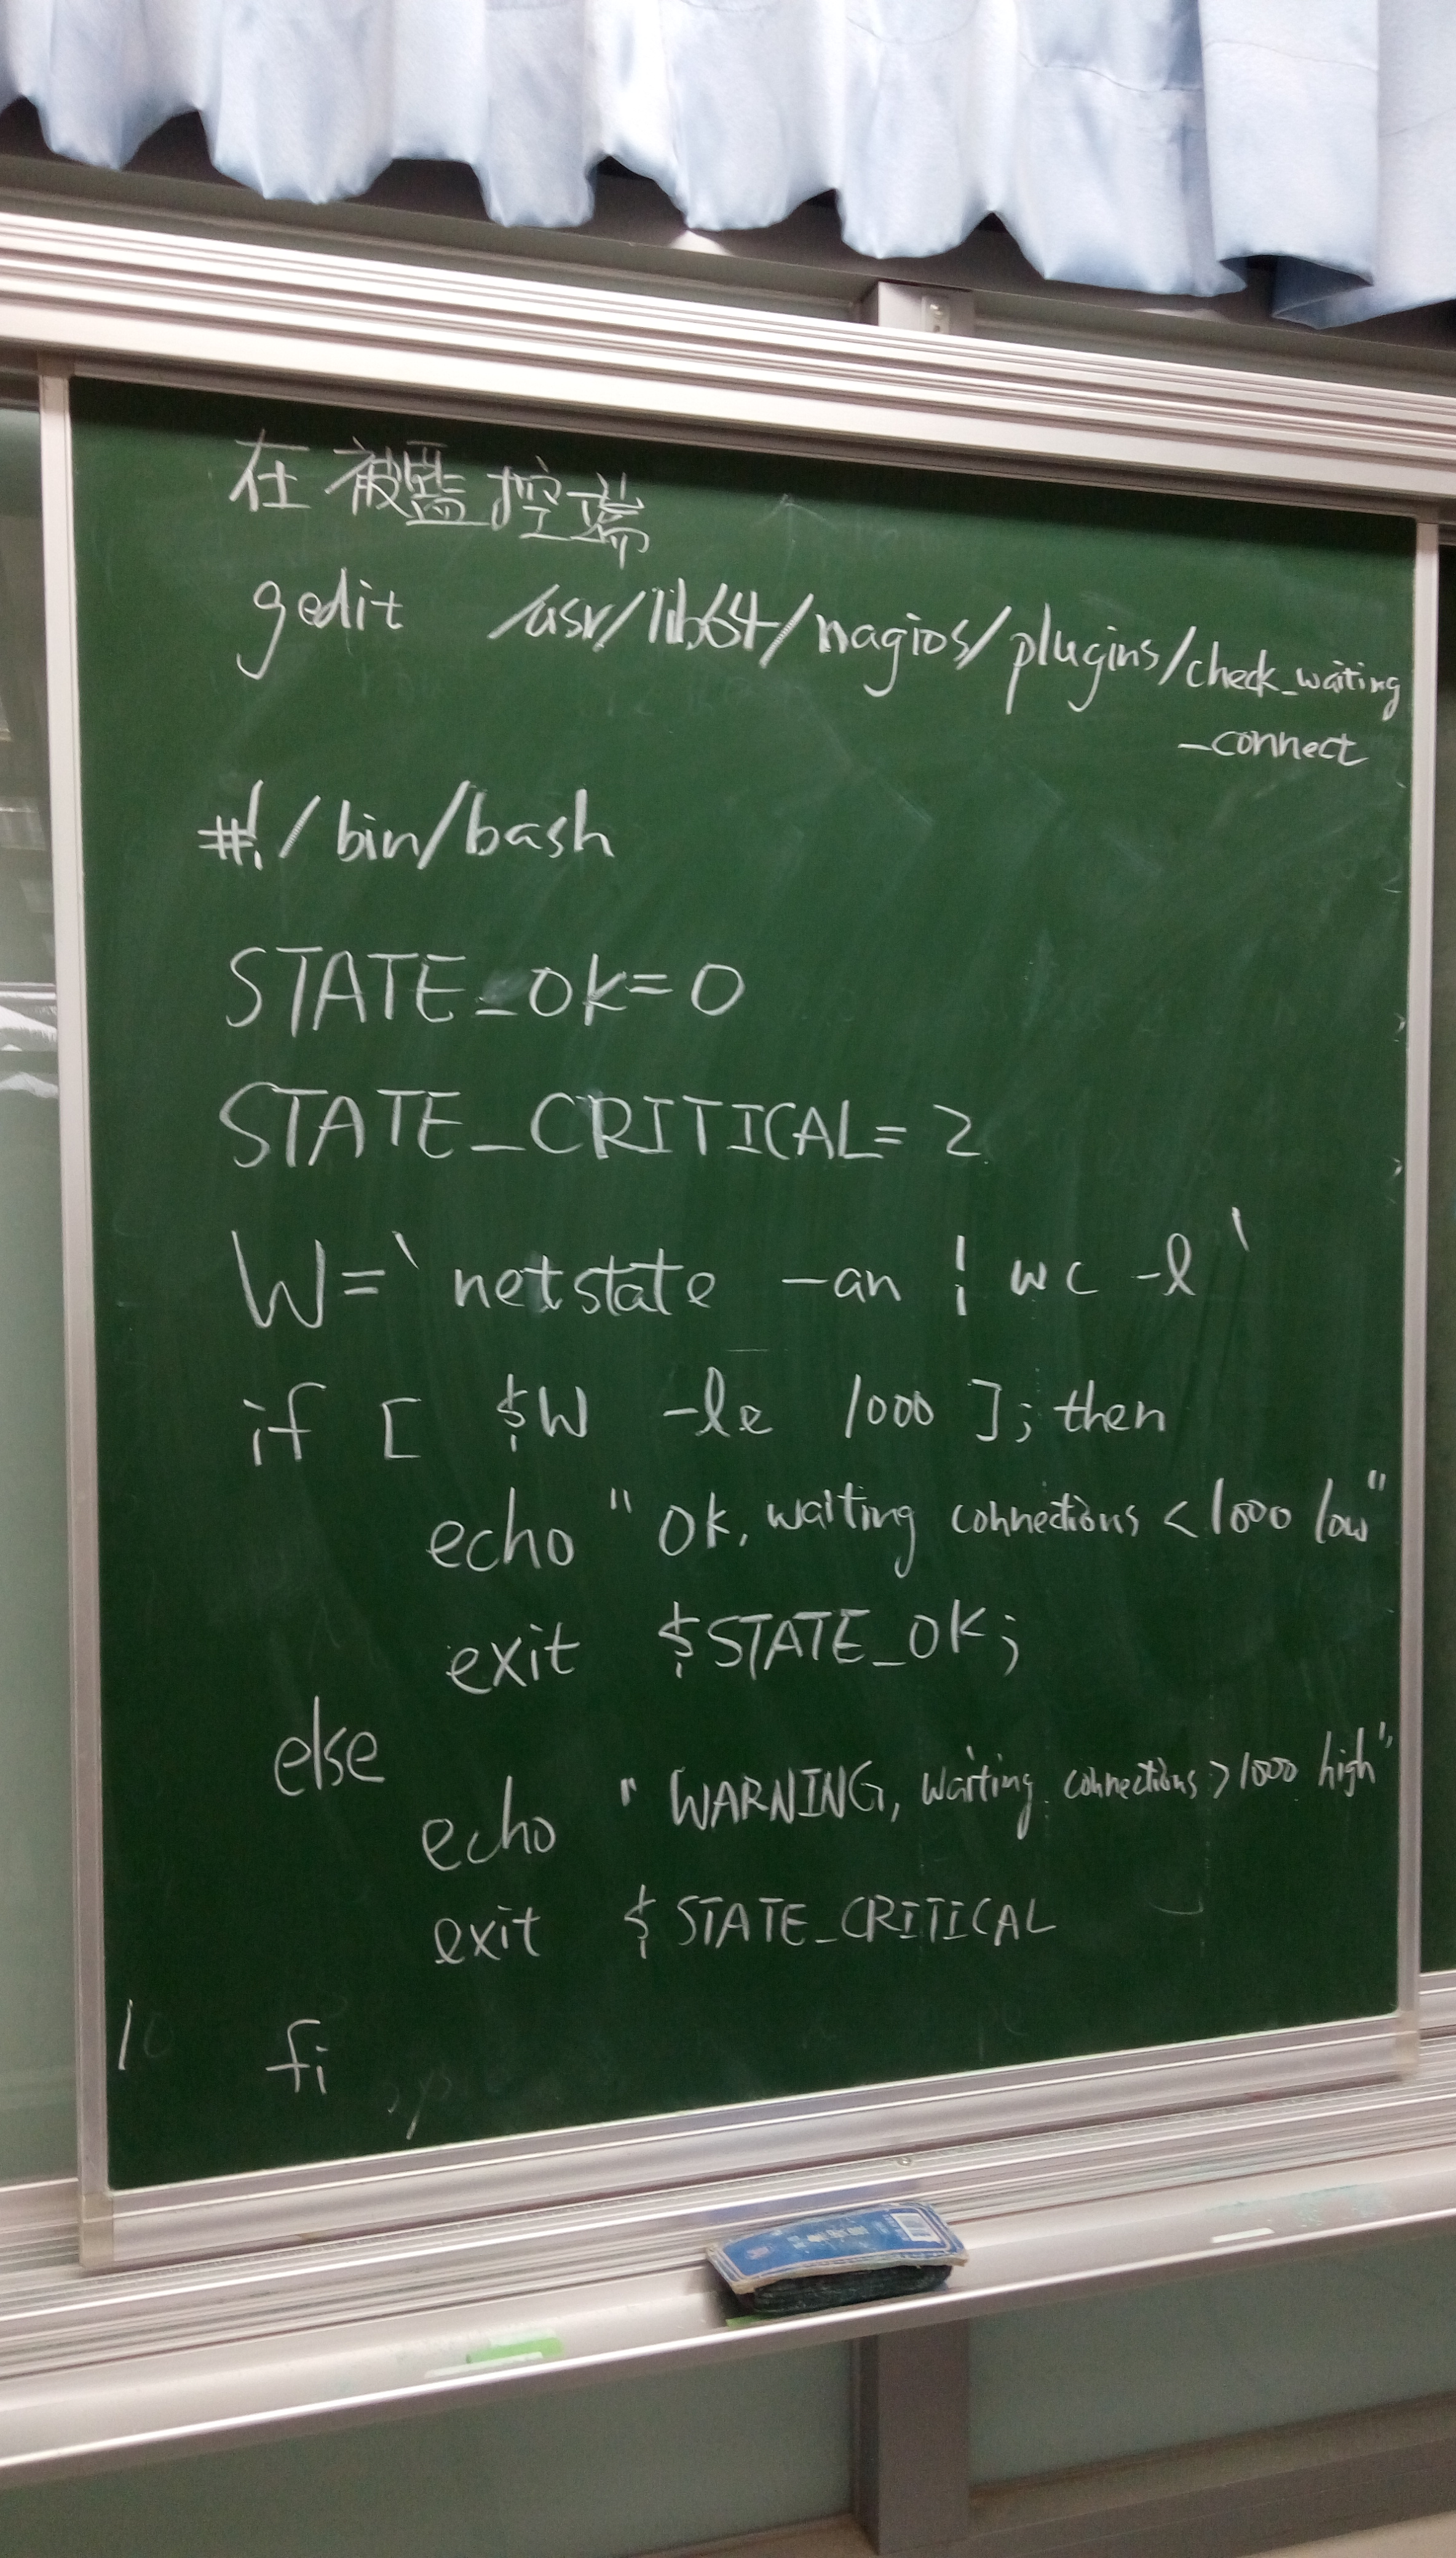 在被監控端
gedit /usr/lib64/nagios/plugins/check_waiting
_connect
#!/bin/bash
STATE_OK=0
STATE_CRITICAL=2
W=`netstate -an | wc -l`
if [ $W -le 1000 ]; then
echo "OK, waiting connections < 1000 low"
exit $STATE_OK;
else
echo "WARNING, waiting connections > 1000 high"
exit $STATE_CRITICAL
fi